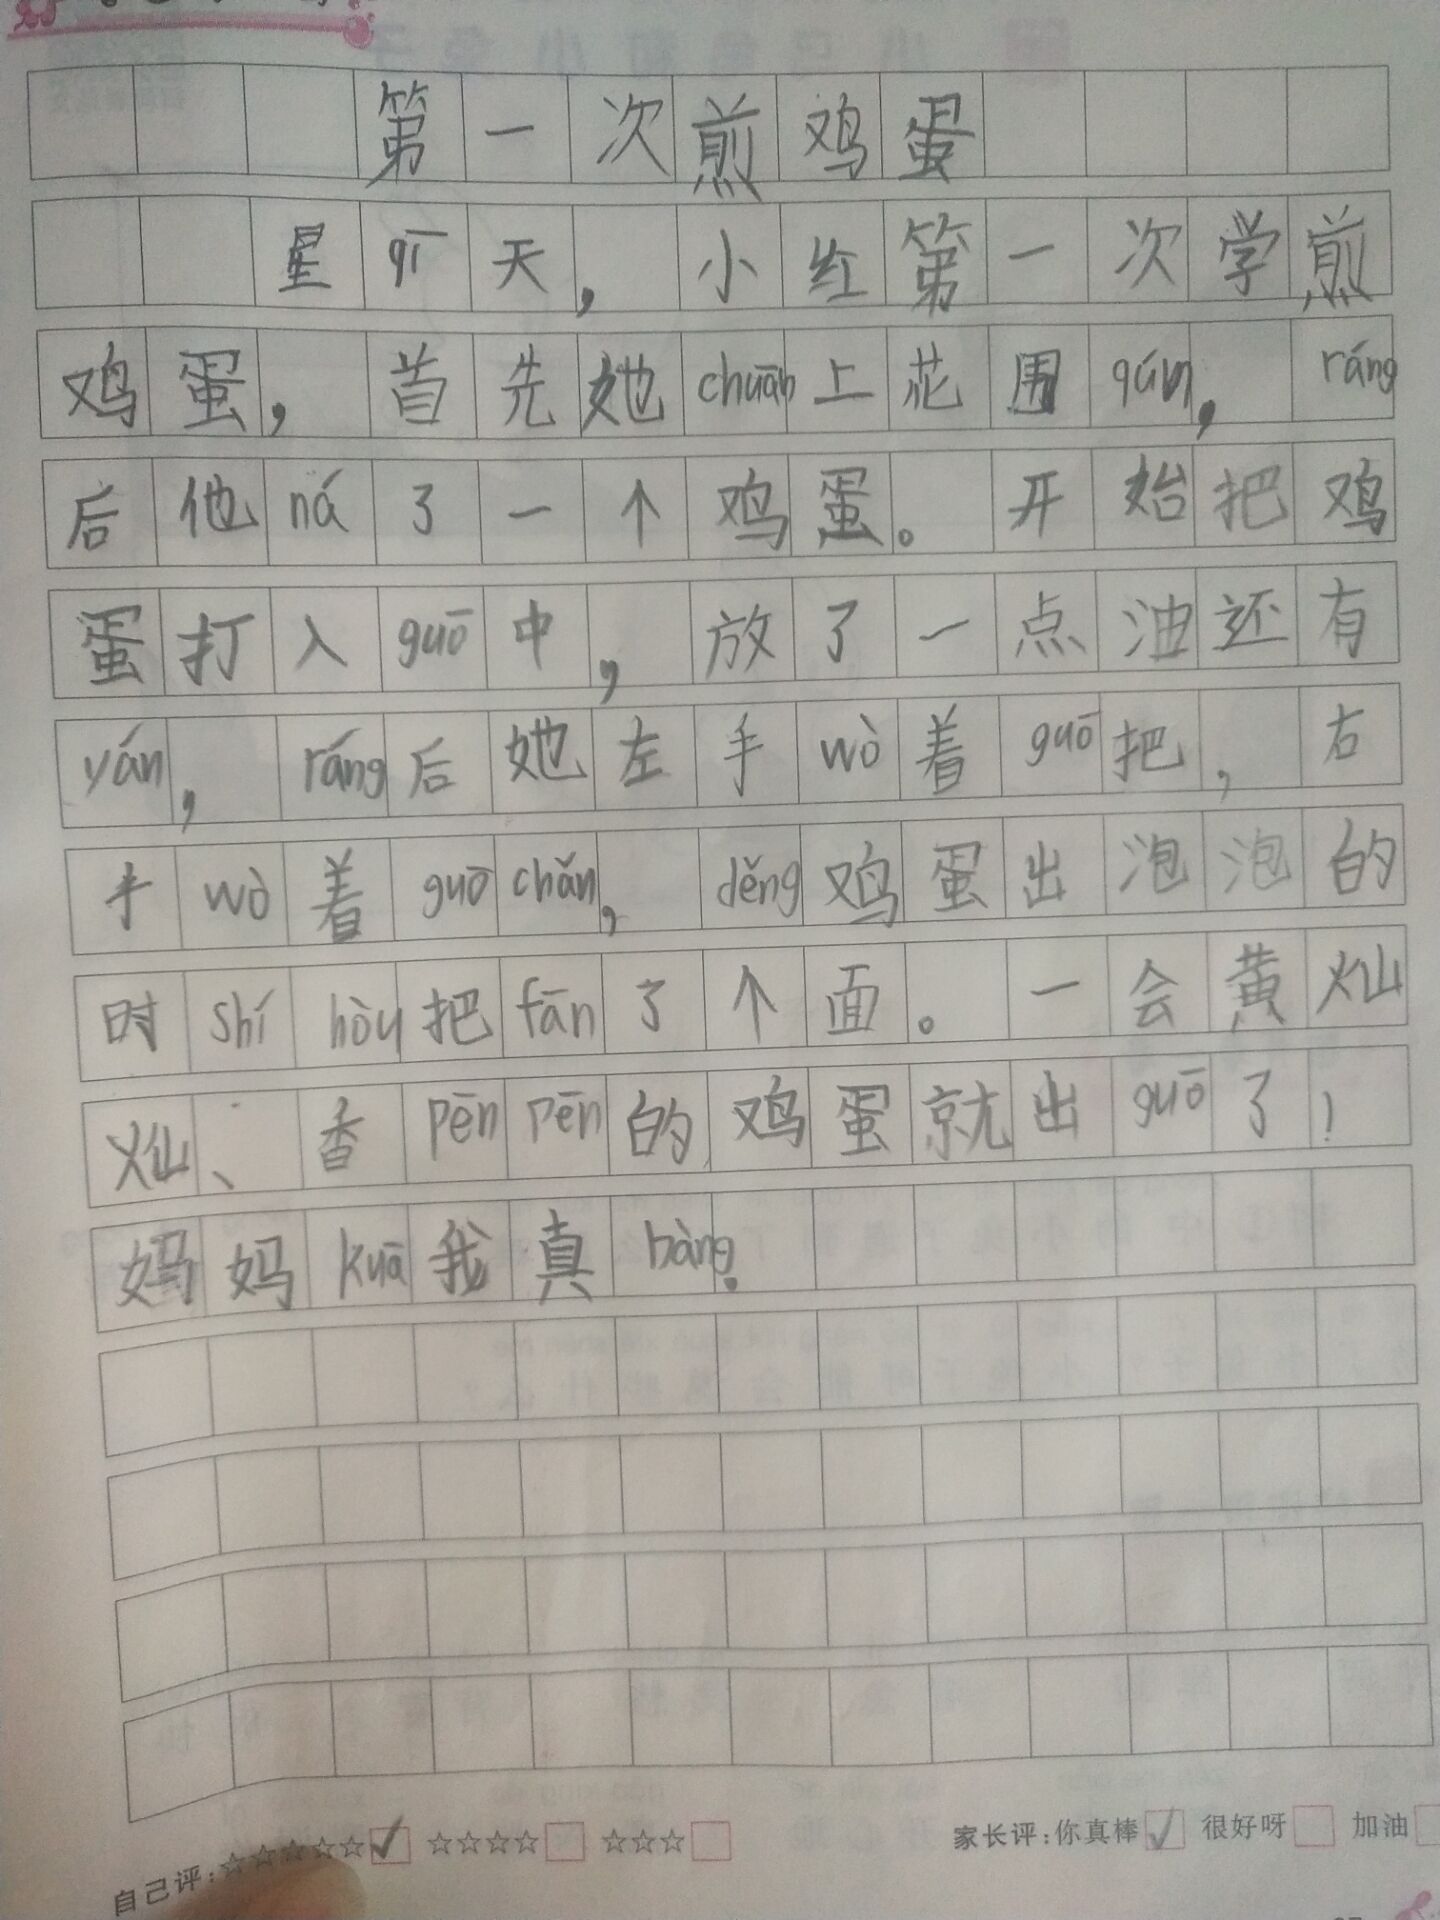 第一次煎鸡蛋
星qī天，小红第一次学煎
鸡蛋，首先她chuān上花围qún，ráng
后他ná了一个鸡蛋。开始把鸡
蛋打入guō中，放了一点油还有
yán，ráng后她左手wò着guō把，右
手wò着guō chǎn，děng鸡蛋出泡泡的
时shí hòu把fān了个面。一会黄灿
灿、香pēn pēn的鸡蛋就出guō了！
妈妈kuā我真bàng。
自己评：☆☆☆☆☆☑ ☆☆☆☆□ ☆☆☆□ 家长评：你真棒☑ 很好呀□ 加油□